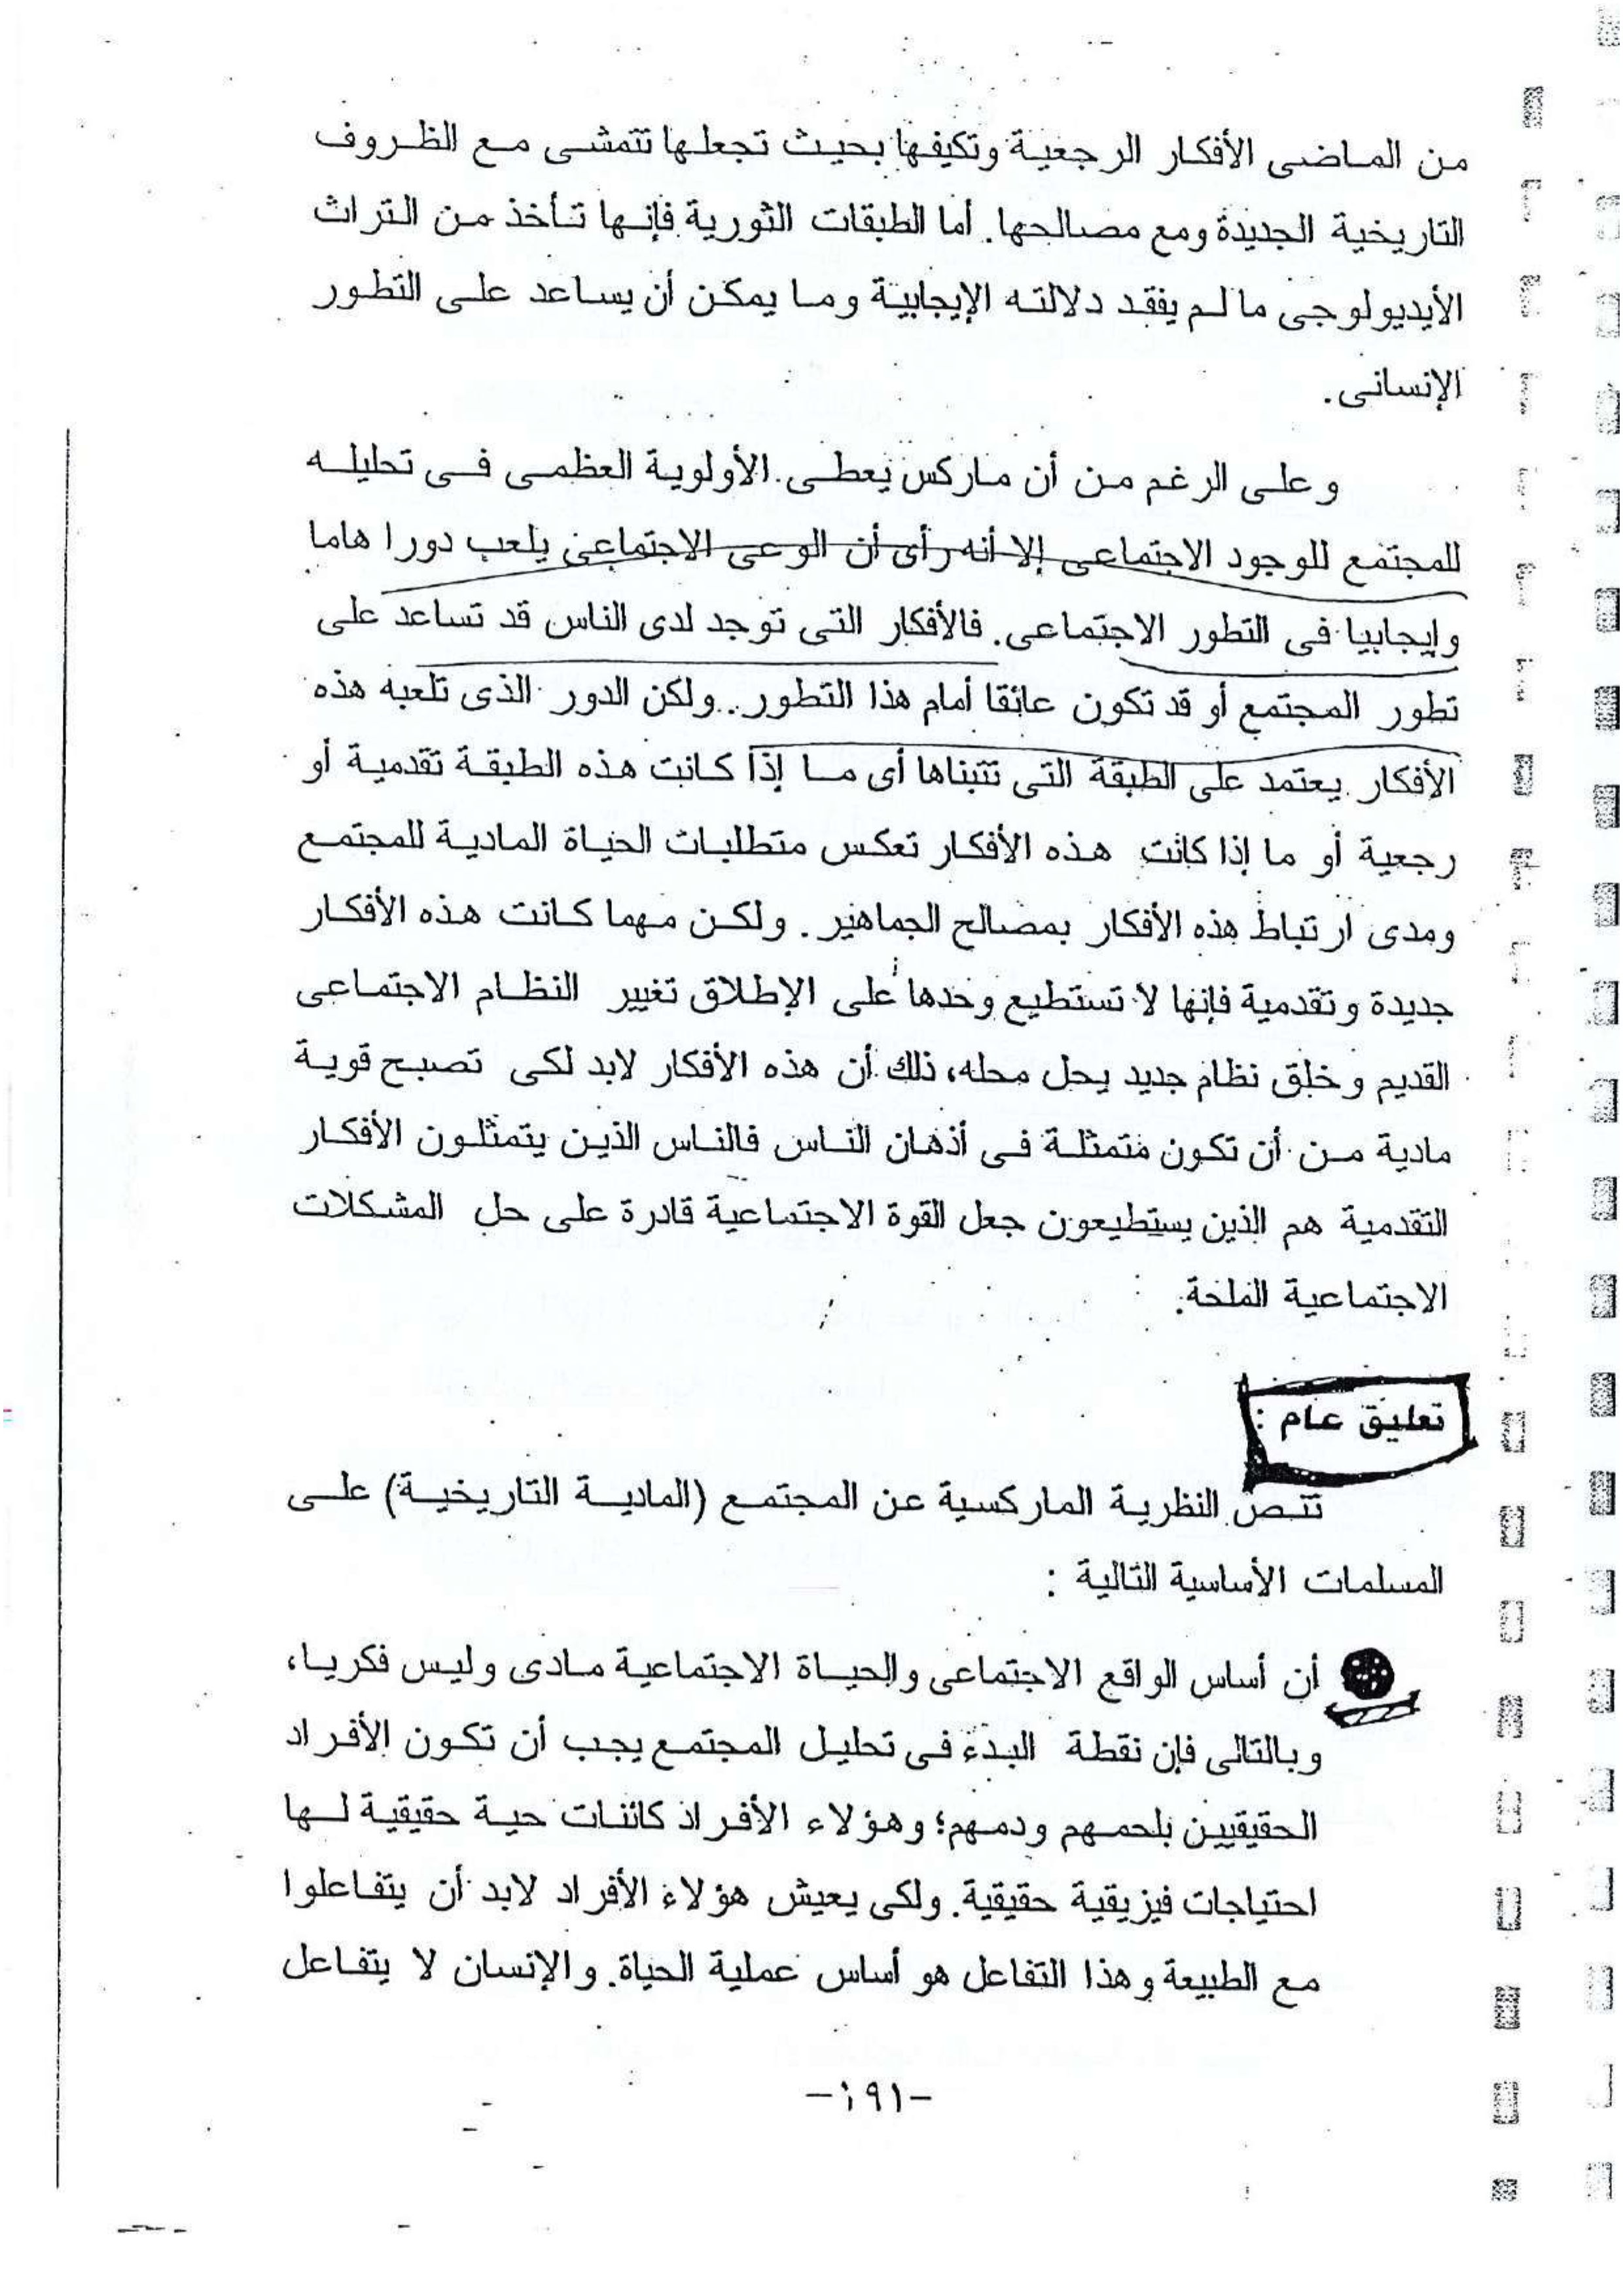 من الماضى الأفكار الرجعية وتكيفها بحيث تجعلها تتمشى مع الظروف
التاريخية الجديدة ومع مصالحها. أما الطبقات الثورية فإنها تأخذ من التراث
الأيديولوجى ما لم يفقد دلالته الإيجابية وما يمكن أن يساعد على التطور
الإنسانى.
وعلى الرغم من أن ماركس يعطى الأولوية العظمى فى تحليله
للمجتمع للوجود الاجتماعى إلا أنه رأى أن الوعى الاجتماعى يلعب دورا هاما
وإيجابيا فى التطور الاجتماعى. فالأفكار التى توجد لدى الناس قد تساعد على
تطور المجتمع أو قد تكون عائقا أمام هذا التطور.. ولكن الدور الذى تلعبه هذه
الأفكار يعتمد على الطبقة التى تتبناها أى ما إذا كانت هذه الطبقة تقدمية أو
رجعية أو ما إذا كانت هذه الأفكار تعكس متطلبات الحياة المادية للمجتمع
ومدى ارتباط هذه الأفكار بمصالح الجماهير. ولكن مهما كانت هذه الأفكار
جديدة وتقدمية فإنها لا تستطيع وحدها على الإطلاق تغيير النظام الاجتماعى
القديم وخلق نظام جديد يحل محله، ذلك أن هذه الأفكار لابد لكى تصبح قوية
مادية من أن تكون متمثلة فى أذهان الناس فالناس الذين يتمثلون الأفكار
التقدمية هم الذين يستطيعون جعل القوة الاجتماعية قادرة على حل المشكلات
الاجتماعية الملحة.
تعليق عام :
تتص النظرية الماركسية عن المجتمع (المادية التاريخية) على
المسلمات الأساسية التالية :
أن أساس الواقع الاجتماعى والحياة الاجتماعية مادى وليس فكريا،
وبالتالى فإن نقطة البدء فى تحليل المجتمع يجب أن تكون الأفراد
الحقيقيين بلحمهم ودمهم؛ وهؤلاء الأفراد كائنات حية حقيقية لها
احتياجات فيزيقية حقيقية. ولكى يعيش هؤلاء الأفراد لابد أن يتفاعلوا
مع الطبيعة وهذا التفاعل هو أساس عملية الحياة. والإنسان لا يتفاعل
-١٩١-